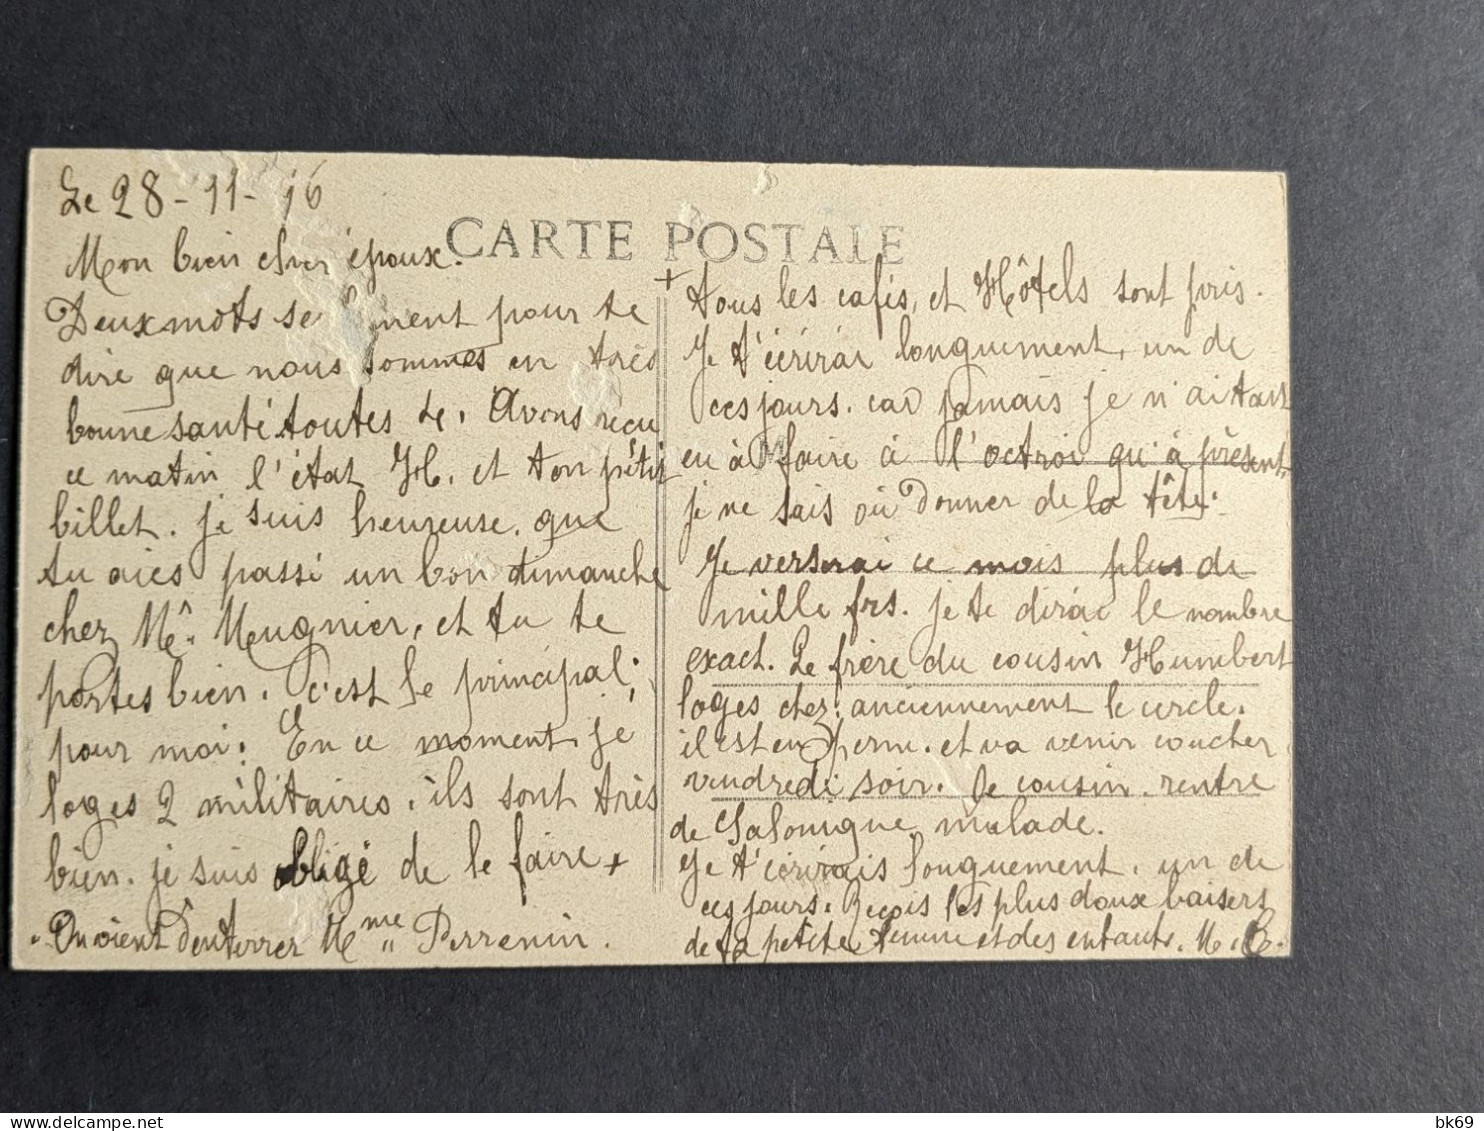 Le 28-11-16
CARTE POSTALE
Mon bien cher époux.
Deux mots se ment pour te
dire que nous sommes en très
bonne santé toutes 4. Avons reçu
ce matin l'état H. et ton petit
billet. je suis heureuse. que
tu aies passé un bon dimanche
chez Mr. Meugnier, et tu te
portes bien. C'est le principal;
pour moi. En ce moment je
loges 2 militaires. ils sont très
bien. je suis obligé de le faire +
On vient d'enterrer Mme Perrenin.
+ tous les cafés, et Hôtels sont pris.
Je t'écrirai longuement, un de
ces jours. car jamais je n'aitant
eu à faire à l'octroi qu'à présent
je ne sais où donner de la tête.
Je verserai ce mois plus de
mille frs. je te dirai le nombre
exact. Le frère du cousin Humbert
loges chez anciennement le cercle.
il est en perm. et va venir coucher
vendredi soir. le cousin rentre
de Salonique malade.
Je t'écrirais longuement. un de
ces jours. Reçois les plus doux baisers
de ta petite femme et des enfants. M. B.
bk69